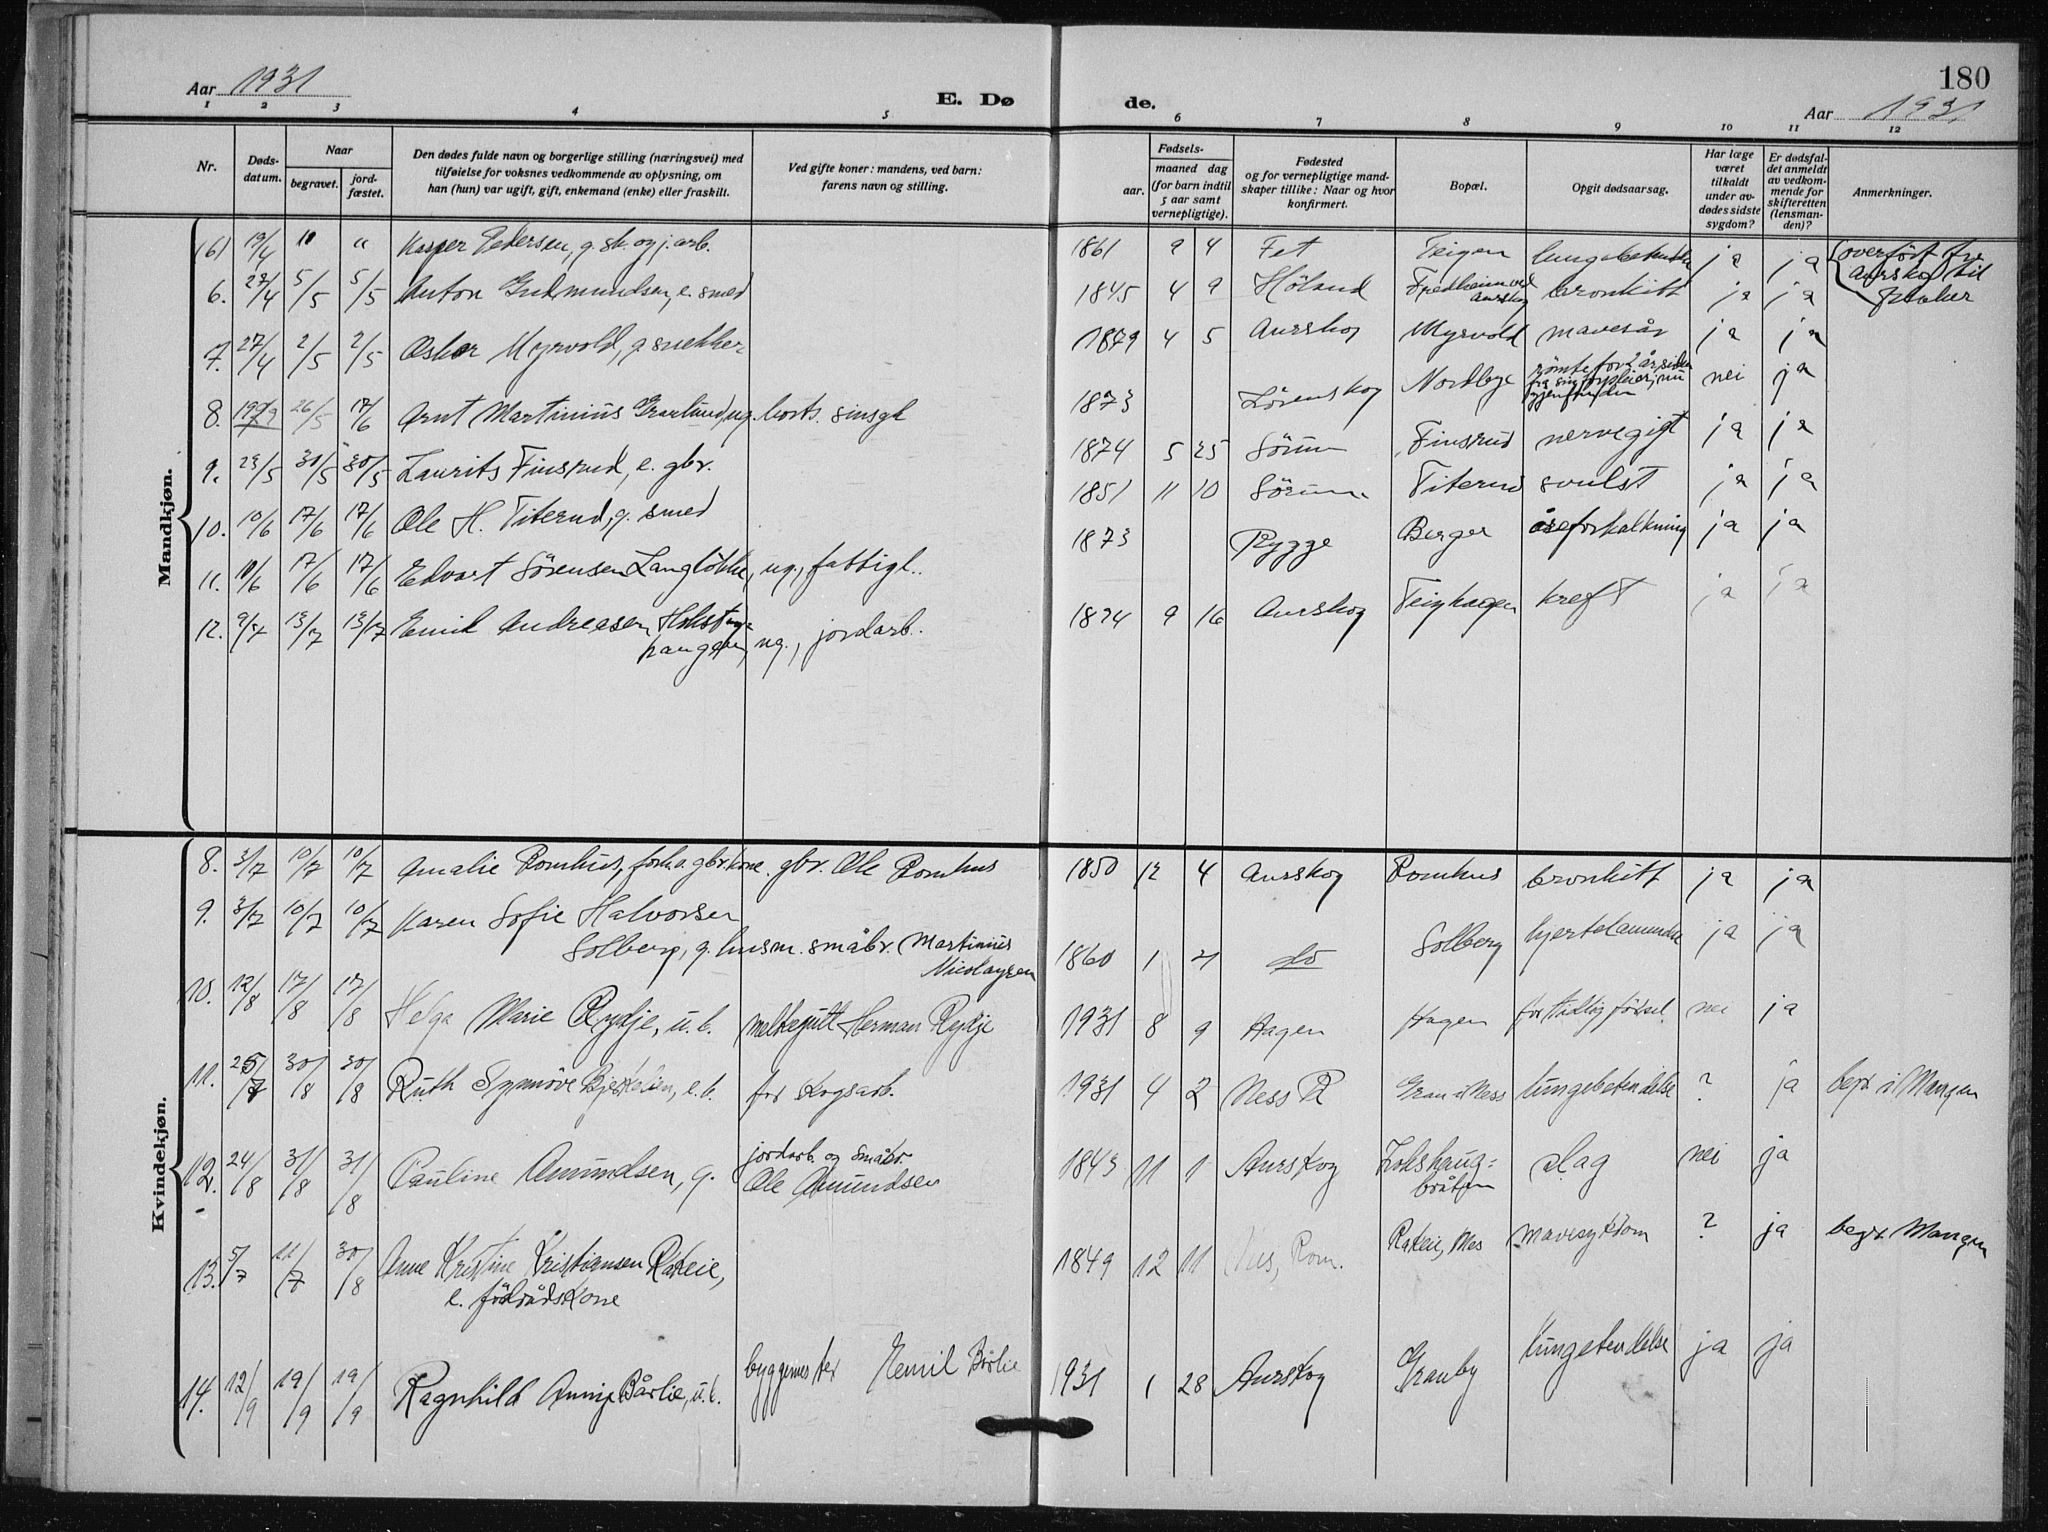 180
Aar 1931
E. Dø de.
Aar 1931
1 2 3 4 5 6 7 8 9 10 11 12
Nr.
Døds-datum.
Naar
begravet.
jord-fæstet.
Den dødes fulde navn og borgerlige stilling (næringsvei) med
tilføielse for voksnes vedkommende av oplysning, om
han (hun) var ugift, gift, enkemand (enke) eller fraskilt.
Ved gifte koner: mandens, ved barn:
farens navn og stilling.
Fødsels-
aar.
maaned dag
(for barn indtil
5 aar samt
vernepligtige).
Fødested
og for vernepligtige mand-
skaper tillike: Naar og hvor
konfirmert.
Bopæl.
Opgit dødsaarsag.
Har læge
været
tilkaldt
under av-
dødes sidste
sygdom?
Er dødsfal-
det anmeldt
av vedkom-
mende for
skifteretten
(lensman-
den)?
Anmerkninger.
Mandkjøn.
(6) 19/4 " " Kasper Pedersen, g. sk. og j.arb. 1861 9 4 Fet Teigen ja ja (overført fra
Aurskog til
6. 27/4 5/5 5/5 Anton Gudmundsen, e. smed 1845 4 9 Høland Fredheim ved
Aurskog bronkitt ja ja
7. 27/4 2/5 2/5 Oskar Myrvold, g. snekker 1879 4 5 Aurskog Myrvold mavesår ja ja
8. 1929 26/5 17/6 Arnt Martinius Grarlund, ug. borts. sinsyk 1873 Lørenskog Nordbye rømte for 2 år siden
fra sin forpleier, nu
gjenfunden nei ja
9. 23/5 30/5 30/5 Laurits Finsrud, e. gbr. 1874 5 25 Sørum Finsrud nervegigt ja ja
10. 10/6 17/6 17/6 Ole H. Titerud, g. smed 1851 11 10 Sørum Titerud svulst ja ja
11. 11/6 17/6 17/6 Edvart Sørensen Langløkke, ug., fattigl. 1873 Rygge Berger åreforkalkning ja ja
12. 9/7 13/7 13/7 Emil Andreasen Holsteg-
hangen, ug., jordarb. 1874 9 16 Aurskog Teighagen kreft ja ja
Kvindekjøn.
8. 3/7 10/7 10/7 Amalie Romhus, forh.a gbr.kone. gbr. Ole Romhus 1850 12 4 Aurskog Romhus bronkitt ja ja
9. 3/7 10/7 10/7 Karen Sofie Halvorsen
Solberg, g. husm. småbr. Martinius
Nicolaysen 1860 1 21 do Solberg hjertelammelse ja ja
10. 12/8 17/8 17/8 Helga Marie Rydje, u.b. melkegutt Herman Rydje 1931 8 9 Hagen Hagen for tidlig fødsel nei ja
11. 25/7 30/8 30/8 Ruth Synnöve Bjerkelien, e.b. for skogsarb. 1931 4 2 Ness R Gran i Ness lungebetendelse ? ja begr. i Mangen
12. 24/8 31/8 31/8 Pauline Amundsen, g. jordarb. og småbr
Ole Amundsen 1843 11 1 Aurskog Lokshaug-
bråten slag nei ja
13. 5/7 11/7 30/8 Anne Kristine Kristiansen Rakeie,
e. föderådskone 1849 12 11 Nes, Rom. Rakeie, Nes mavesykdom ? ja begr. Mangen
14. 12/9 19/9 19/9 Ragnhild Annie Bårlie, u.b. byggemester Hemil Bårlie 1931 1 28 Aurskog Granby lungebetendelse ja ja